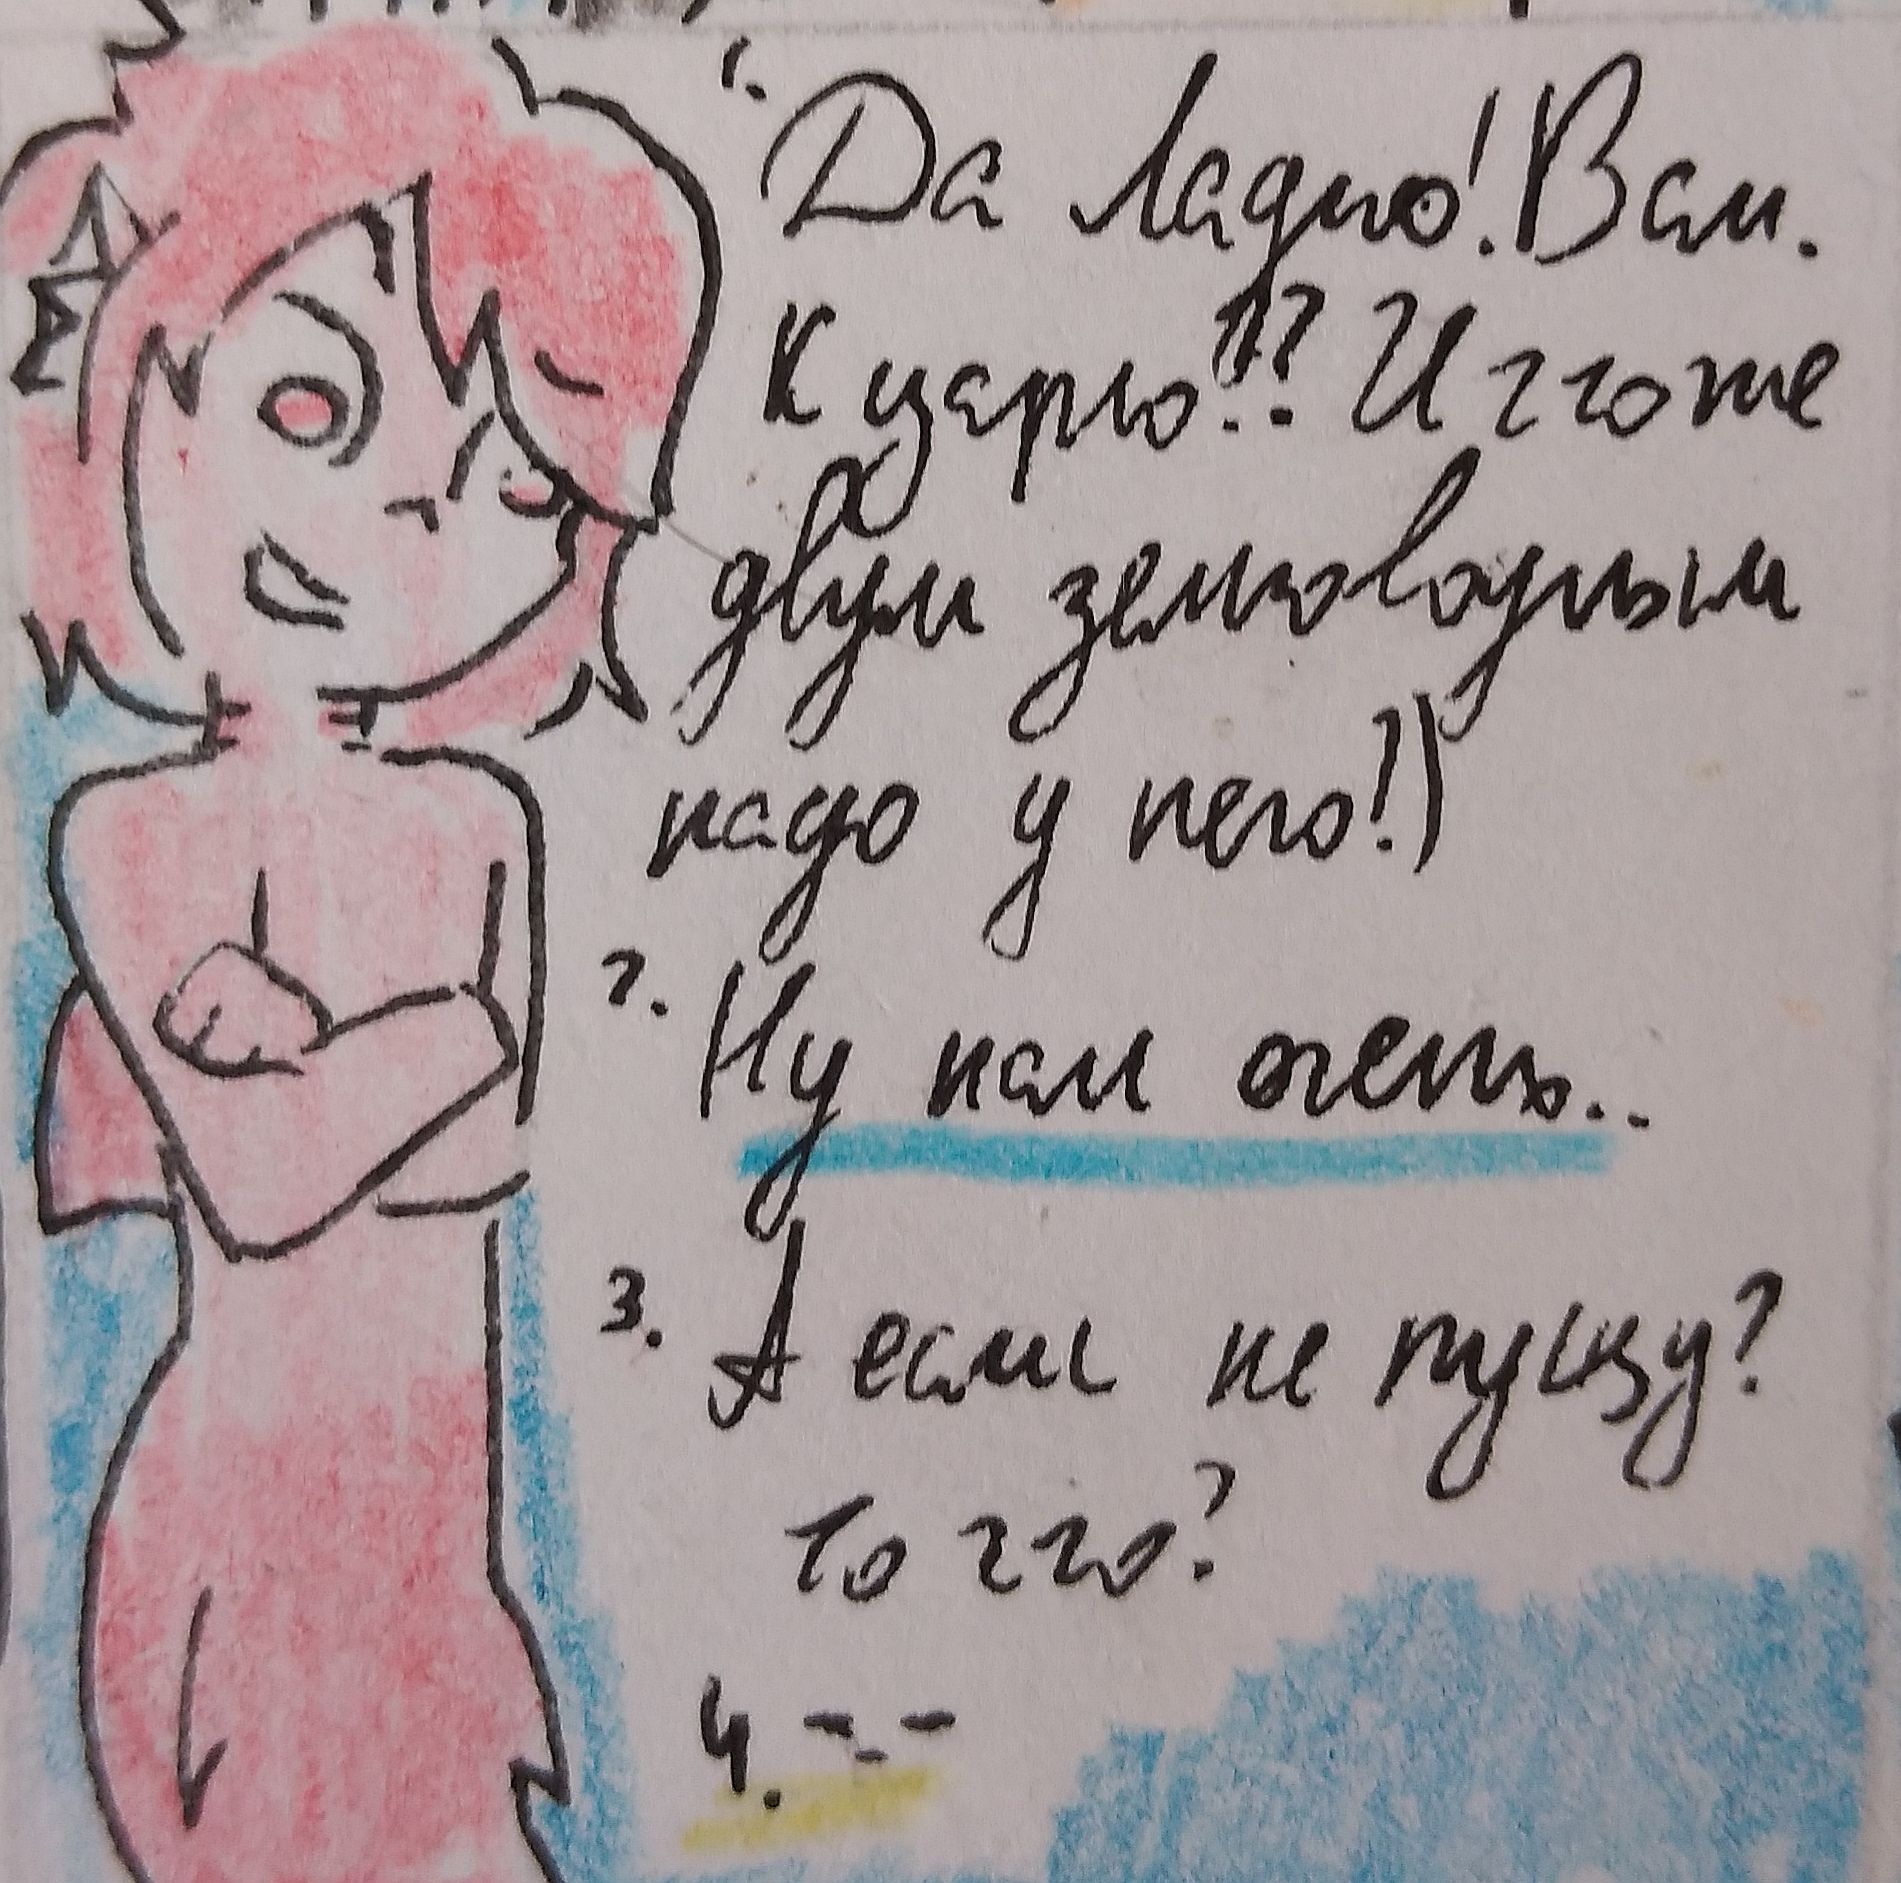 1. Да ладно! Вам.
К царю!? И что же
двум земноводным
надо у него!)
2. Ну нам очень..
3. А если не пущу?
то что?
4. -_-